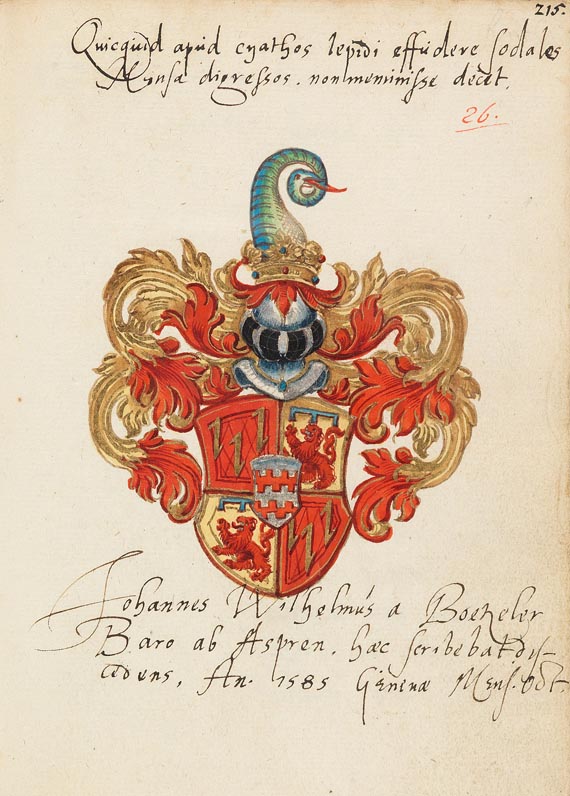 215.
Quicquid apud cyathos lepidi effudere sodales
Mensa digressos. non meminisse decet.
26.
Johannes Wilhelmús a Boetzeler
Baro ab Aspren. hæc scribebat dis-
cedens, An. 1585 Genevæ Mens. Oct.